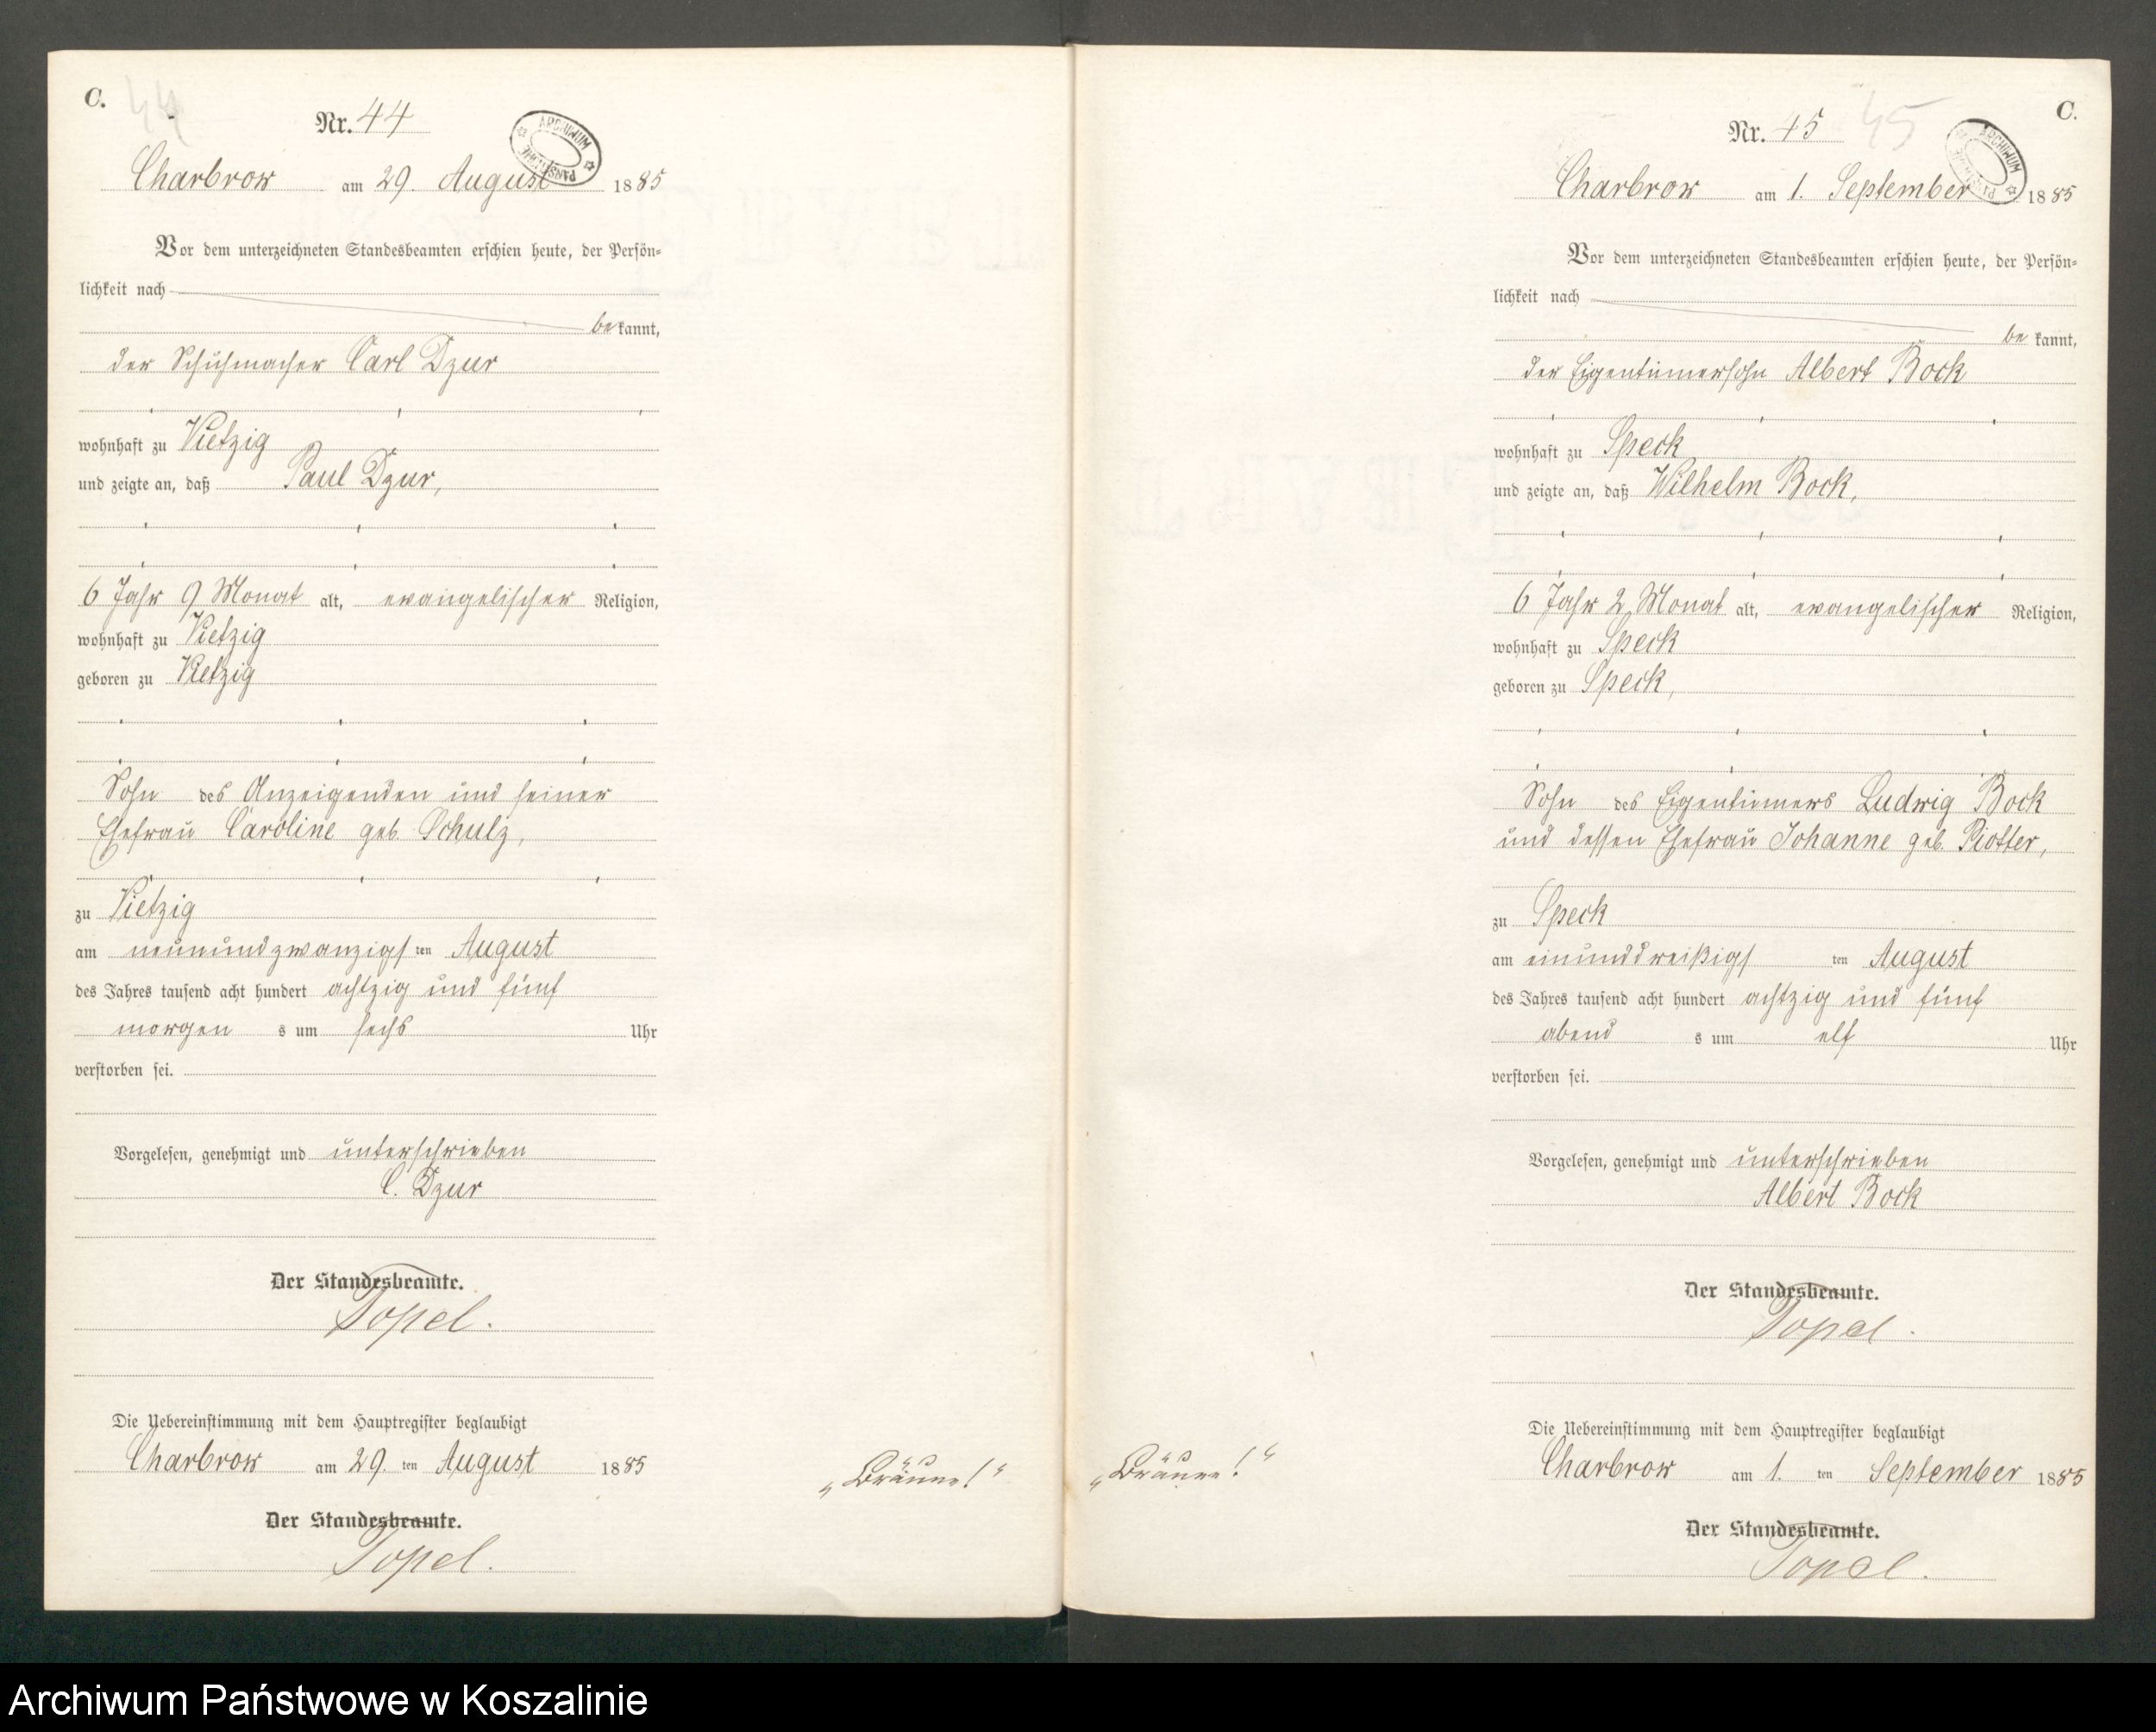 C.
44
Nr. 44
ARCHIWUM PAŃSTWOWE
Charbrow am 29. August 1885
Vor dem unterzeichneten Standesbeamten erschien heute, der Persön-
lichkeit nach
be kannt,
der Schuhmacher Carl Dzur
wohnhaft zu Vietzig
und zeigte an, daß Paul Dzur,
6 Jahr 9 Monat alt, evangelischer Religion,
wohnhaft zu Vietzig
geboren zu Vietzig
Sohn des Anzeigenden und seiner
Ehefrau Caroline geb. Schulz,
zu Vietzig
am neunundzwanzigs ten August
des Jahres tausend acht hundert achtzig und fünf
morgen s um sechs Uhr
verstorben sei.
Vorgelesen, genehmigt und unterschrieben
C. Dzur
Der Standesbeamte.
Topel.
Die Uebereinstimmung mit dem Hauptregister beglaubigt
Charbrow am 29. ten August 1885
Der Standesbeamte.
Topel.
„Bräune!“
C.
45
Nr. 45
ARCHIWUM PAŃSTWOWE
Charbrow am 1. September 1885
Vor dem unterzeichneten Standesbeamten erschien heute, der Persön-
lichkeit nach
be kannt,
der Eigentümersohn Albert Bock
wohnhaft zu Speck
und zeigte an, daß Wilhelm Bock,
6 Jahr 2 Monat alt, evangelischer Religion,
wohnhaft zu Speck
geboren zu Speck,
Sohn des Eigentümers Ludwig Bock
und dessen Ehefrau Johanne geb. Piotter,
zu Speck
am einunddreißigs ten August
des Jahres tausend acht hundert achtzig und fünf
abend s um elf Uhr
verstorben sei.
Vorgelesen, genehmigt und unterschrieben
Albert Bock
Der Standesbeamte.
Topel.
Die Uebereinstimmung mit dem Hauptregister beglaubigt
Charbrow am 1. ten September 1885
Der Standesbeamte.
Topel.
„Bräune!“
Archiwum Państwowe w Koszalinie